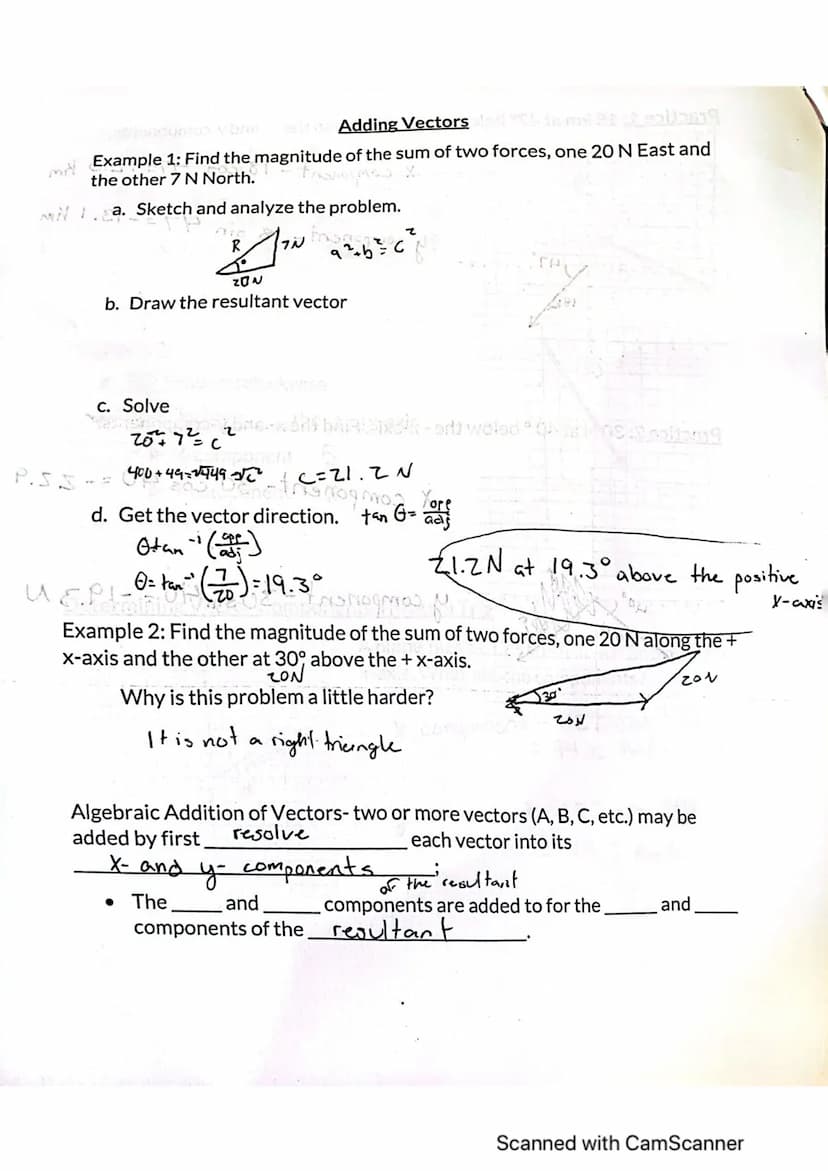 Adding Vectors
Example 1: Find the magnitude of the sum of two forces, one 20 N East and
the other 7 N North.
a. Sketch and analyze the problem.
R 7N a²+b²=c²
20N
b. Draw the resultant vector
c. Solve
20²+7²=c²
400+49=√449 √c² c=21.2 N
d. Get the vector direction. tan θ= opp/adj
θtan⁻¹(opp/adj)
θ=tan⁻¹(7/20)=19.3°
21.2N at 19.3° above the positive
x-axis
Example 2: Find the magnitude of the sum of two forces, one 20 N along the +
x-axis and the other at 30° above the + x-axis.
20N
30° 20N
20N
Why is this problem a little harder?
It is not a right triangle
Algebraic Addition of Vectors- two or more vectors (A, B, C, etc.) may be
added by first resolve each vector into its
x- and y- components
of the resultant
• The ____ and ____ components are added to for the ____ and ____
components of the resultant.
Scanned with CamScanner